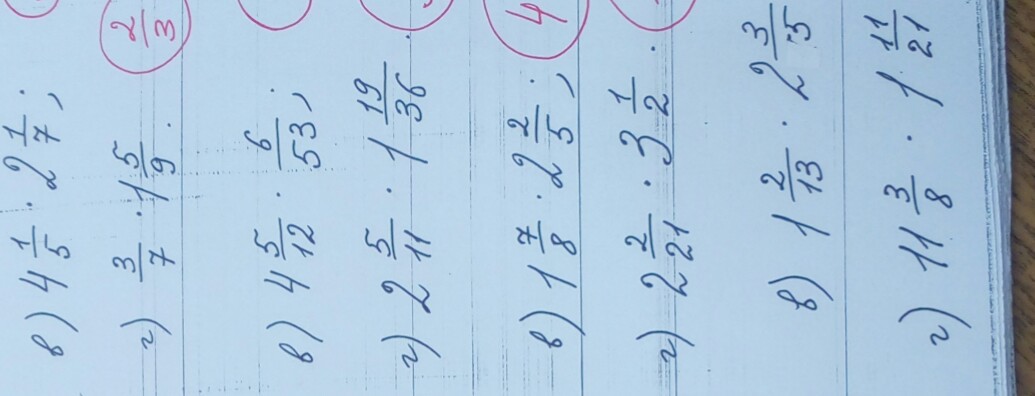 в) 4 1/5 · 2 1/7;
г) 3/7 · 1 5/9. 2/3
в) 4 5/12 · 6/53;
г) 2 5/11 · 1 19/36.
в) 1 7/8 · 2 2/5; 4
г) 2 2/21 · 3 1/2.
в) 1 2/13 · 2 3/5
г) 11 3/8 · 1 11/21